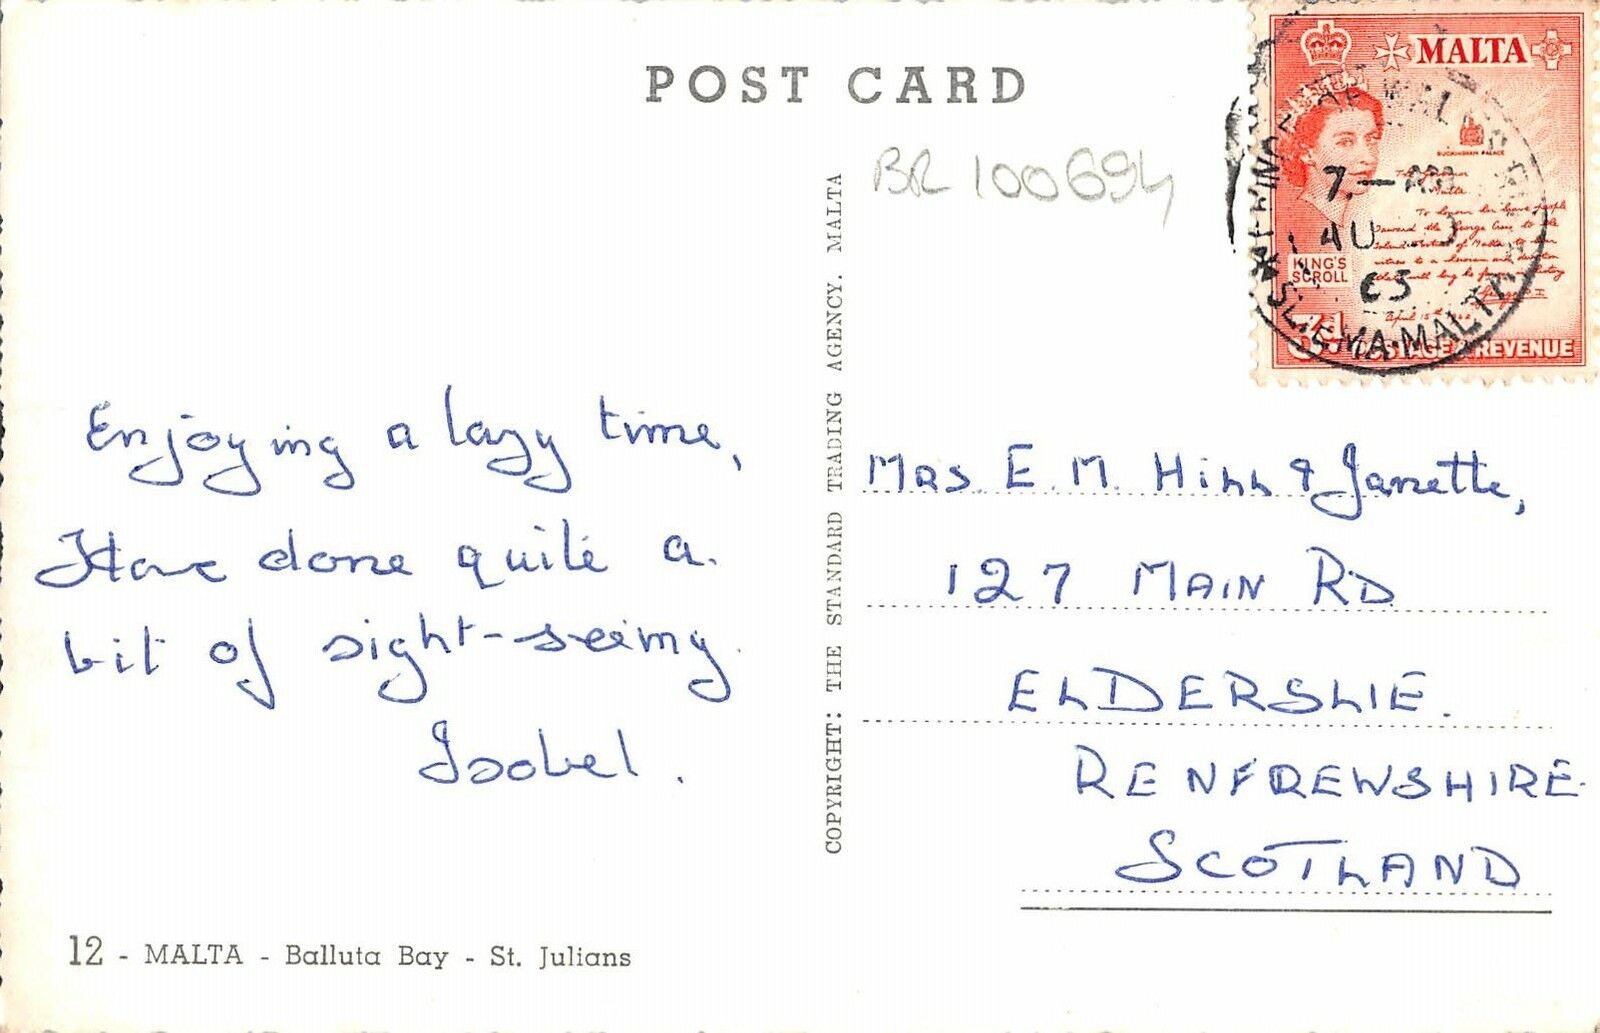 POST CARD
BR 100694
MALTA
BUCKINGHAM PALACE
KING'S
SCROLL
3d
POSTAGE & REVENUE
7.— AM
AU
63
SLIEMA·MALTA
Enjoying a lazy time,
Have done quite a.
bit of sight-seeing.
Isobel.
COPYRIGHT: THE STANDARD TRADING AGENCY. MALTA
Mrs. E. M. Hill & Janette,
127 MAIN RD
ELDERSLIE.
RENFREWSHIRE.
SCOTLAND
12 - MALTA - Balluta Bay - St. Julians